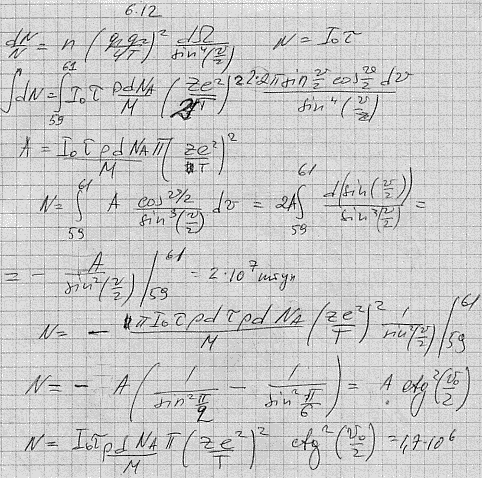 6.12
dN/N = n (q₁q₂/4T)² dΩ/sin⁴(υ/2) N = I₀τ
∫dN = ∫₅₉⁶¹ I₀τ ρdN_A/M (ze²/T)² 2·2π sin υ/2 cos υ/2 dυ / sin⁴(υ/2)
A = I₀τρdN_Aπ/M (ze²/T)²
N = ∫₅₉⁶¹ A cos υ/2 / sin³(υ/2) dυ = 2A∫₅₉⁶¹ d(sin(υ/2))/sin³(υ/2) =
= - A/sin²(υ/2) |₅₉⁶¹ = 2·10⁷ штук
N = - πI₀τρdτρdN_A/M (ze²/T)² 1/sin²(υ/2) |₅₉⁶¹
N = - A (1/sin² π/2 - 1/sin² π/6) = A ctg²(υ₀/2)
N = I₀τρdN_A/M π (ze²/T)² ctg²(υ₀/2) = 1,7·10⁶